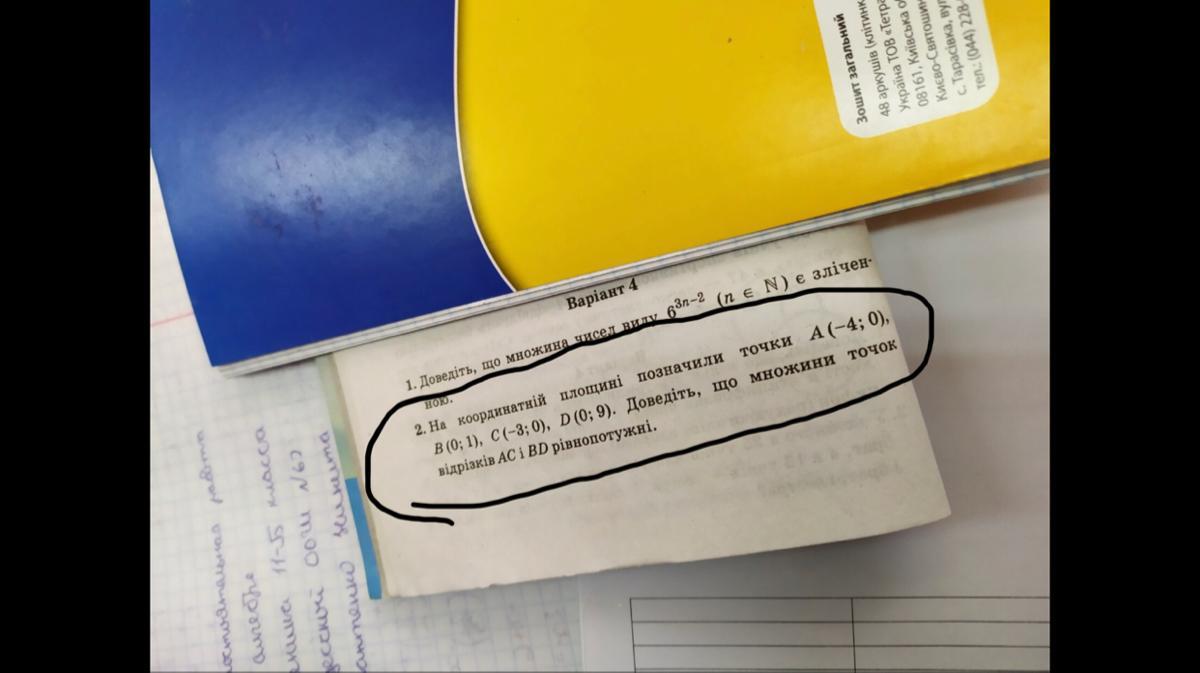 Зошит загальний
48 аркушів (клітинк
Україна ТОВ «Тетра
08161, Київська о
Києво-Святошин
с. Тарасівка, вул
тел.: (044) 228-
Варіант 4
1. Доведіть, що множина чисел виду 6³ⁿ⁻² (n ∈ ℕ) є злічен-
ною.
2. На координатній площині позначили точки A (−4; 0),
B (0; 1), C (−3; 0), D (0; 9). Доведіть, що множини точок
відрізків AC і BD рівнопотужні.
работа
алгебре
11-Б класса
ООШ №67